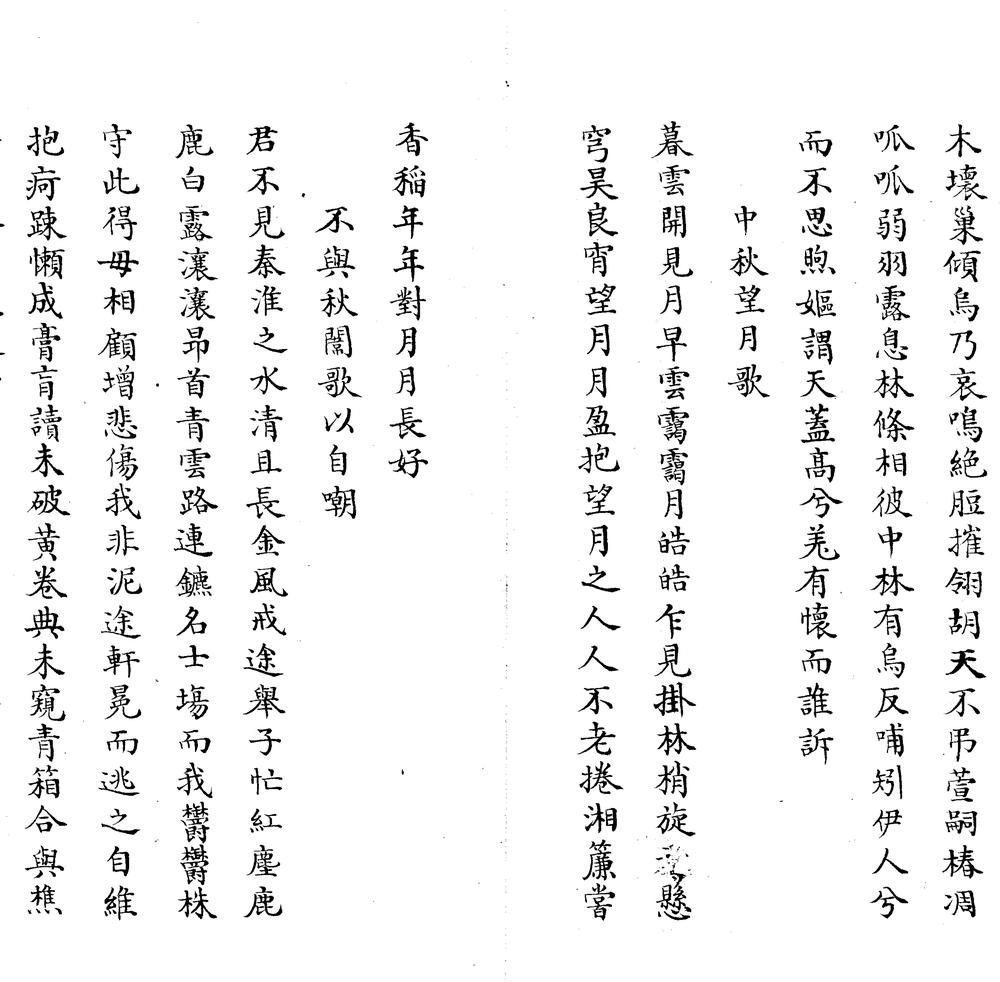 木壞巢傾烏乃哀鳴絶脰摧翎胡天不弔萱嗣椿凋
呱呱弱羽露息林條相彼中林有烏反哺矧伊人兮
而不思煦嫗謂天蓋髙兮羌有懷而誰訴
中秋望月歌
暮雲開見月早雲靄靄月皓皓乍見掛林梢旋懸
穹昊良宵望月月盈抱望月之人人不老捲湘簾嘗
香稲年年對月月長好
不與秋闈歌以自嘲
君不見秦淮之水清且長金風戒途舉子忙紅塵鹿
鹿白露瀼瀼昂首青雲路連鑣名士塲而我欝欝株
守此得毋相顧增悲傷我非泥途軒冕而逃之自維
抱疴踈懶成膏肓讀未破黄卷典未窺青箱合與樵